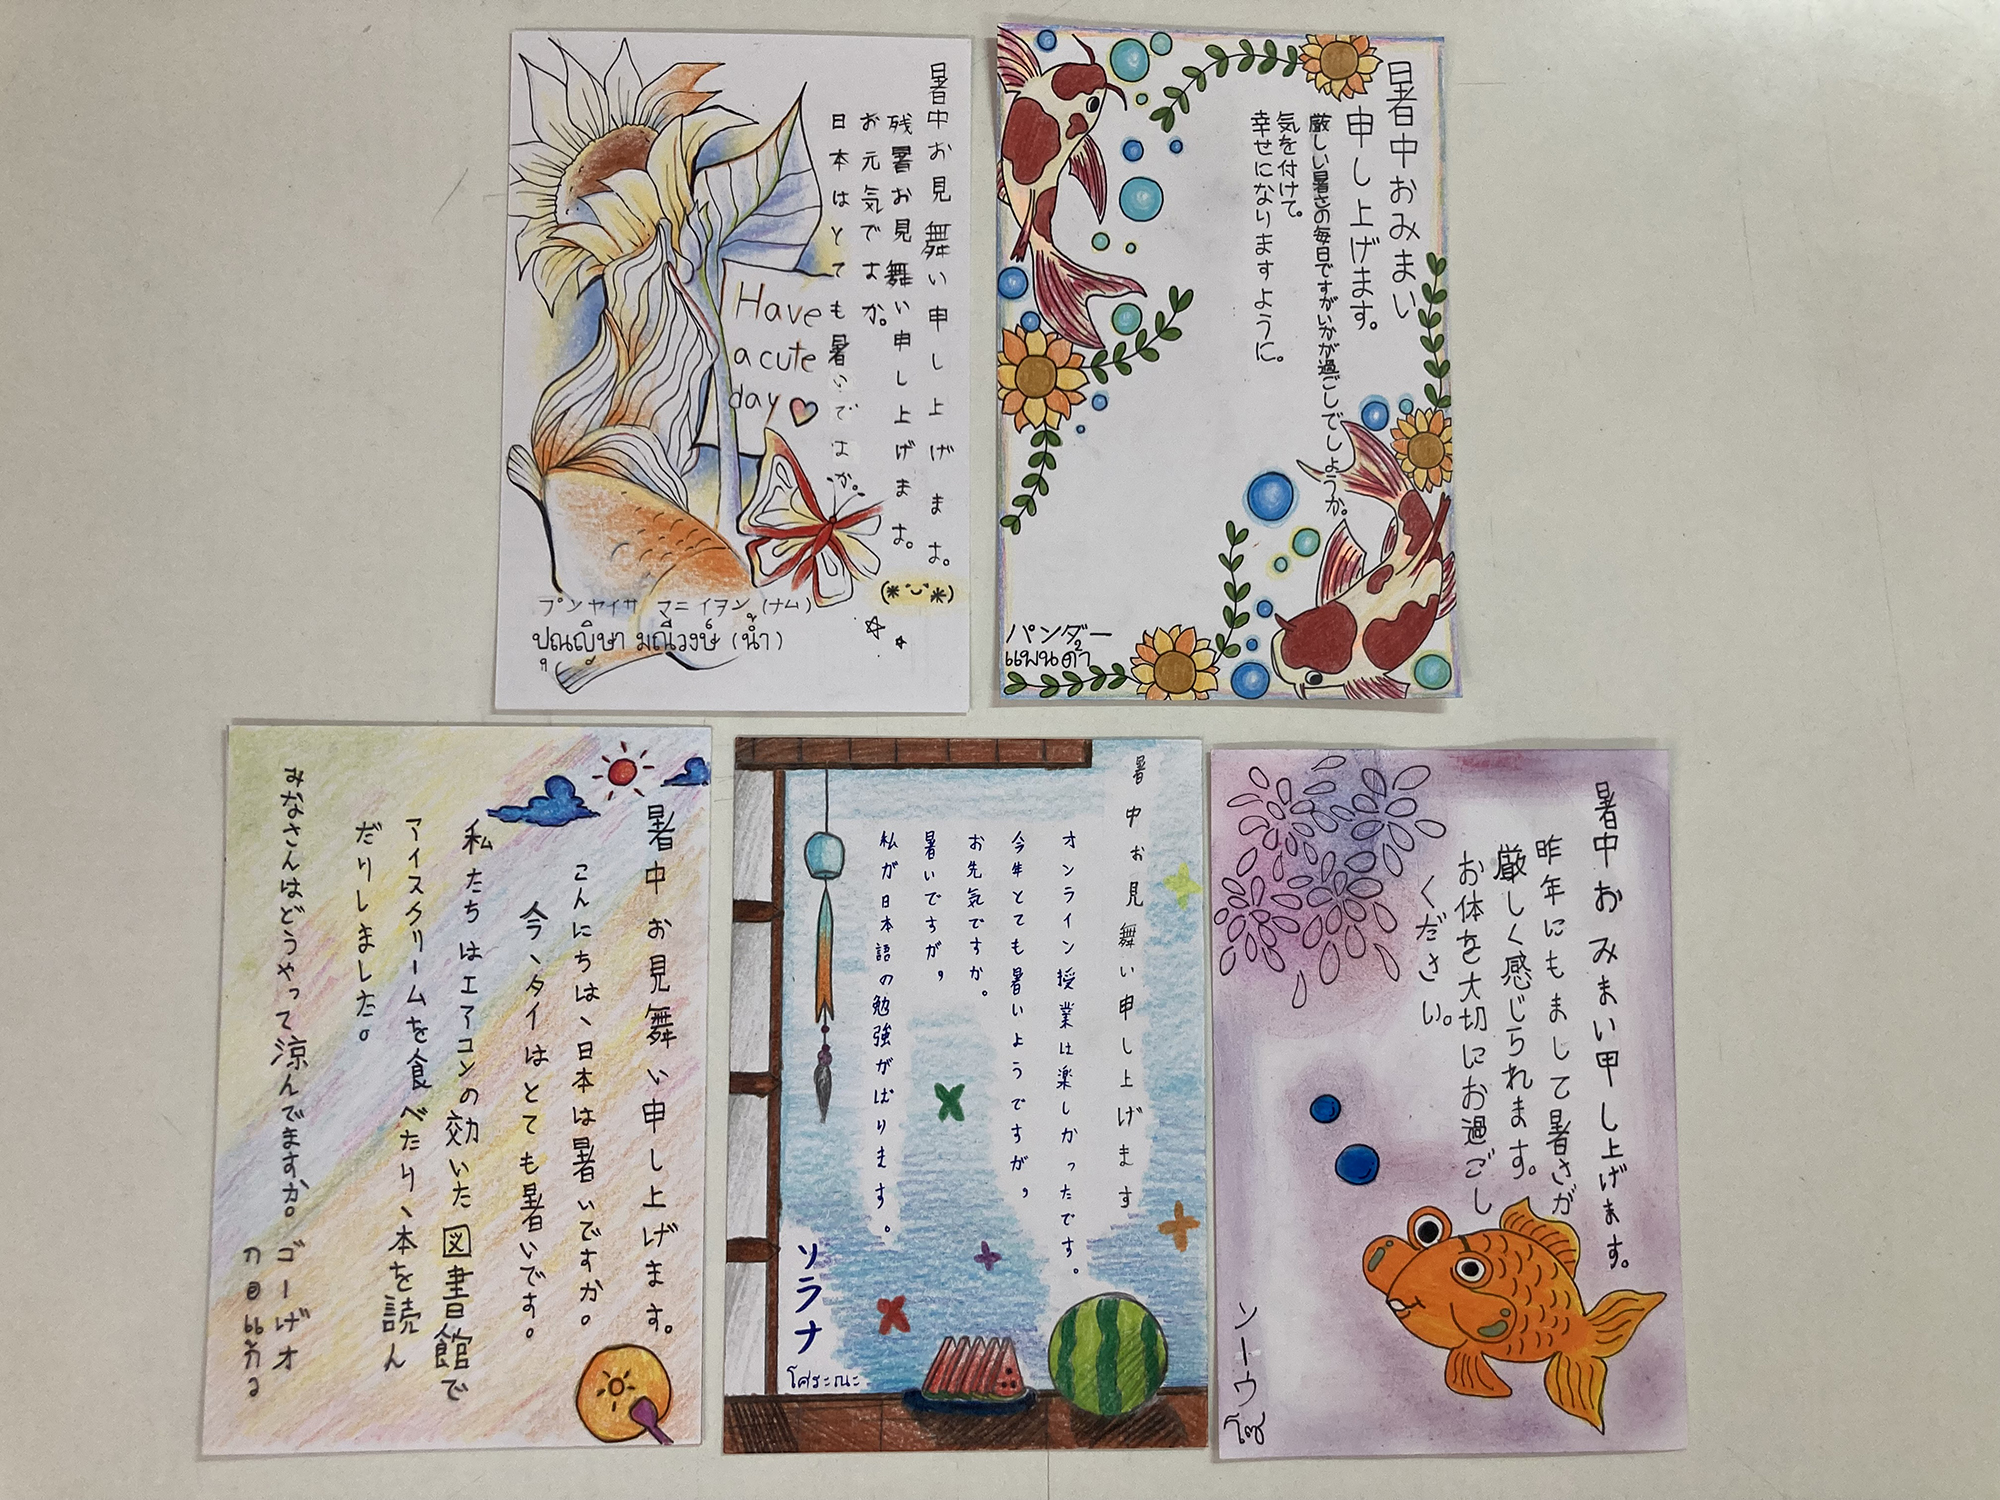 暑中お見舞い申し上げます。
残暑お見舞い申し上げます。
お元気ですか。
日本はとても暑いではか。
Have
a cute
day
プンヤイサ マニイヲン(ナム)
ปุณญิษา มณีวงษ์ (น้ำ)
暑中おみまい
申し上げます。
厳しい暑さの毎日ですがいかが過ごしでしょうか。
気を付けて。
幸せになりますように。
パンダー
แพนด้า
暑中お見舞い申し上げます。
こんにちは、日本は暑いですか。
今、タイはとても暑いです。
私たちはエアコンの効いた図書館で
アイスクリームを食べたり、本を読ん
だりしました。
みなさんはどうやって涼んでますか。
ゴーげオ
暑中お見舞い申し上げます
オンライン授業は楽しかったです。
今年とても暑いようですが,
お先気ですか。
暑いですが,
私が日本語の勉強がばります。
ソラナ
โศระณะ
暑中おみまい申し上げます。
昨年にもまして暑さが
厳しく感じられます。
お体を大切にお過ごし
ください。
ソーウ
โซ่